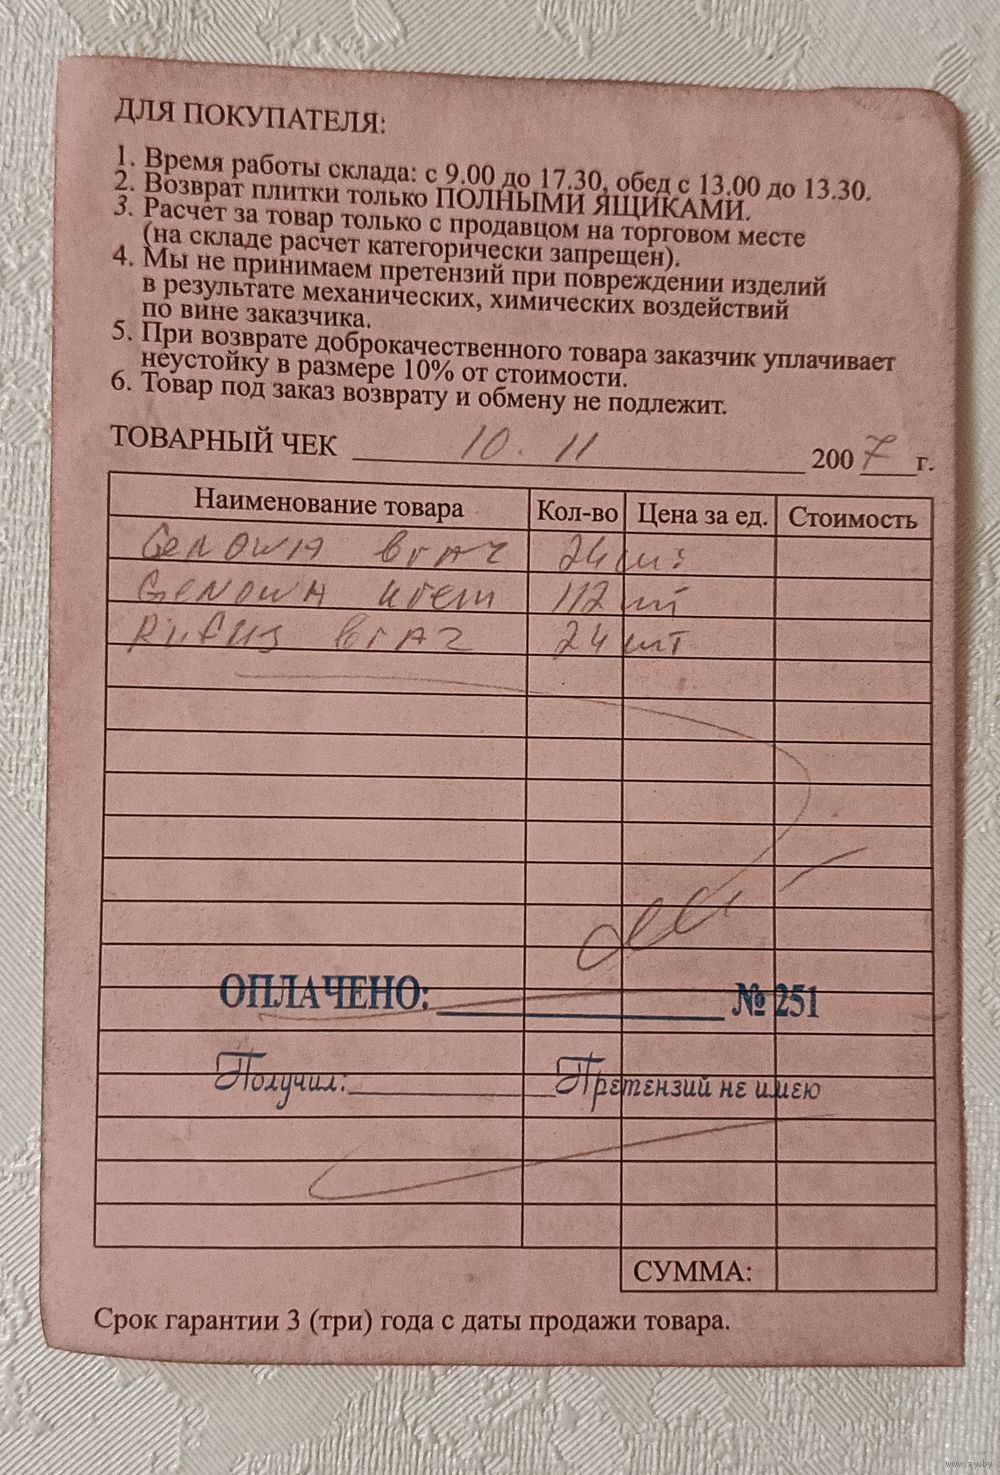 ДЛЯ ПОКУПАТЕЛЯ:
1. Время работы склада: с 9.00 до 17.30, обед с 13.00 до 13.30.
2. Возврат плитки только ПОЛНЫМИ ЯЩИКАМИ.
3. Расчет за товар только с продавцом на торговом месте
(на складе расчет категорически запрещен).
4. Мы не принимаем претензий при повреждении изделий
в результате механических, химических воздействий
по вине заказчика.
5. При возврате доброкачественного товара заказчик уплачивает
неустойку в размере 10% от стоимости.
6. Товар под заказ возврату и обмену не подлежит.
ТОВАРНЫЙ ЧЕК 10.11 2007 г.
Наименование товара Кол-во Цена за ед. Стоимость
24 шт
112 шт
24 шт
ОПЛАЧЕНО: № 251
Получил: Претензий не имею
СУММА:
Срок гарантии 3 (три) года с даты продажи товара.
www.ay.by